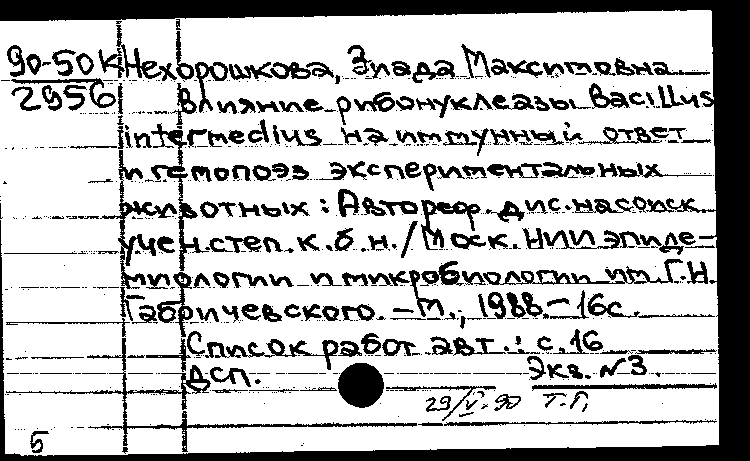 90-50К Нехорошкова, Эпада Максимовна
2956 Влияние рибонуклеазы Bacillus
intermedius на иммунный ответ
и гемопоэз экспериментальных
животных : Автореф. дис. на соиск.
учен. степ. к. б. н. / Моск. НИИ эпиде-
миологии и микробиологии им. Г.Н.
Габричевского. – М., 1988. – 16с.
Список работ авт. : с. 16
ДСП. Экз. N3.
29/V-90 Т.Г.
б